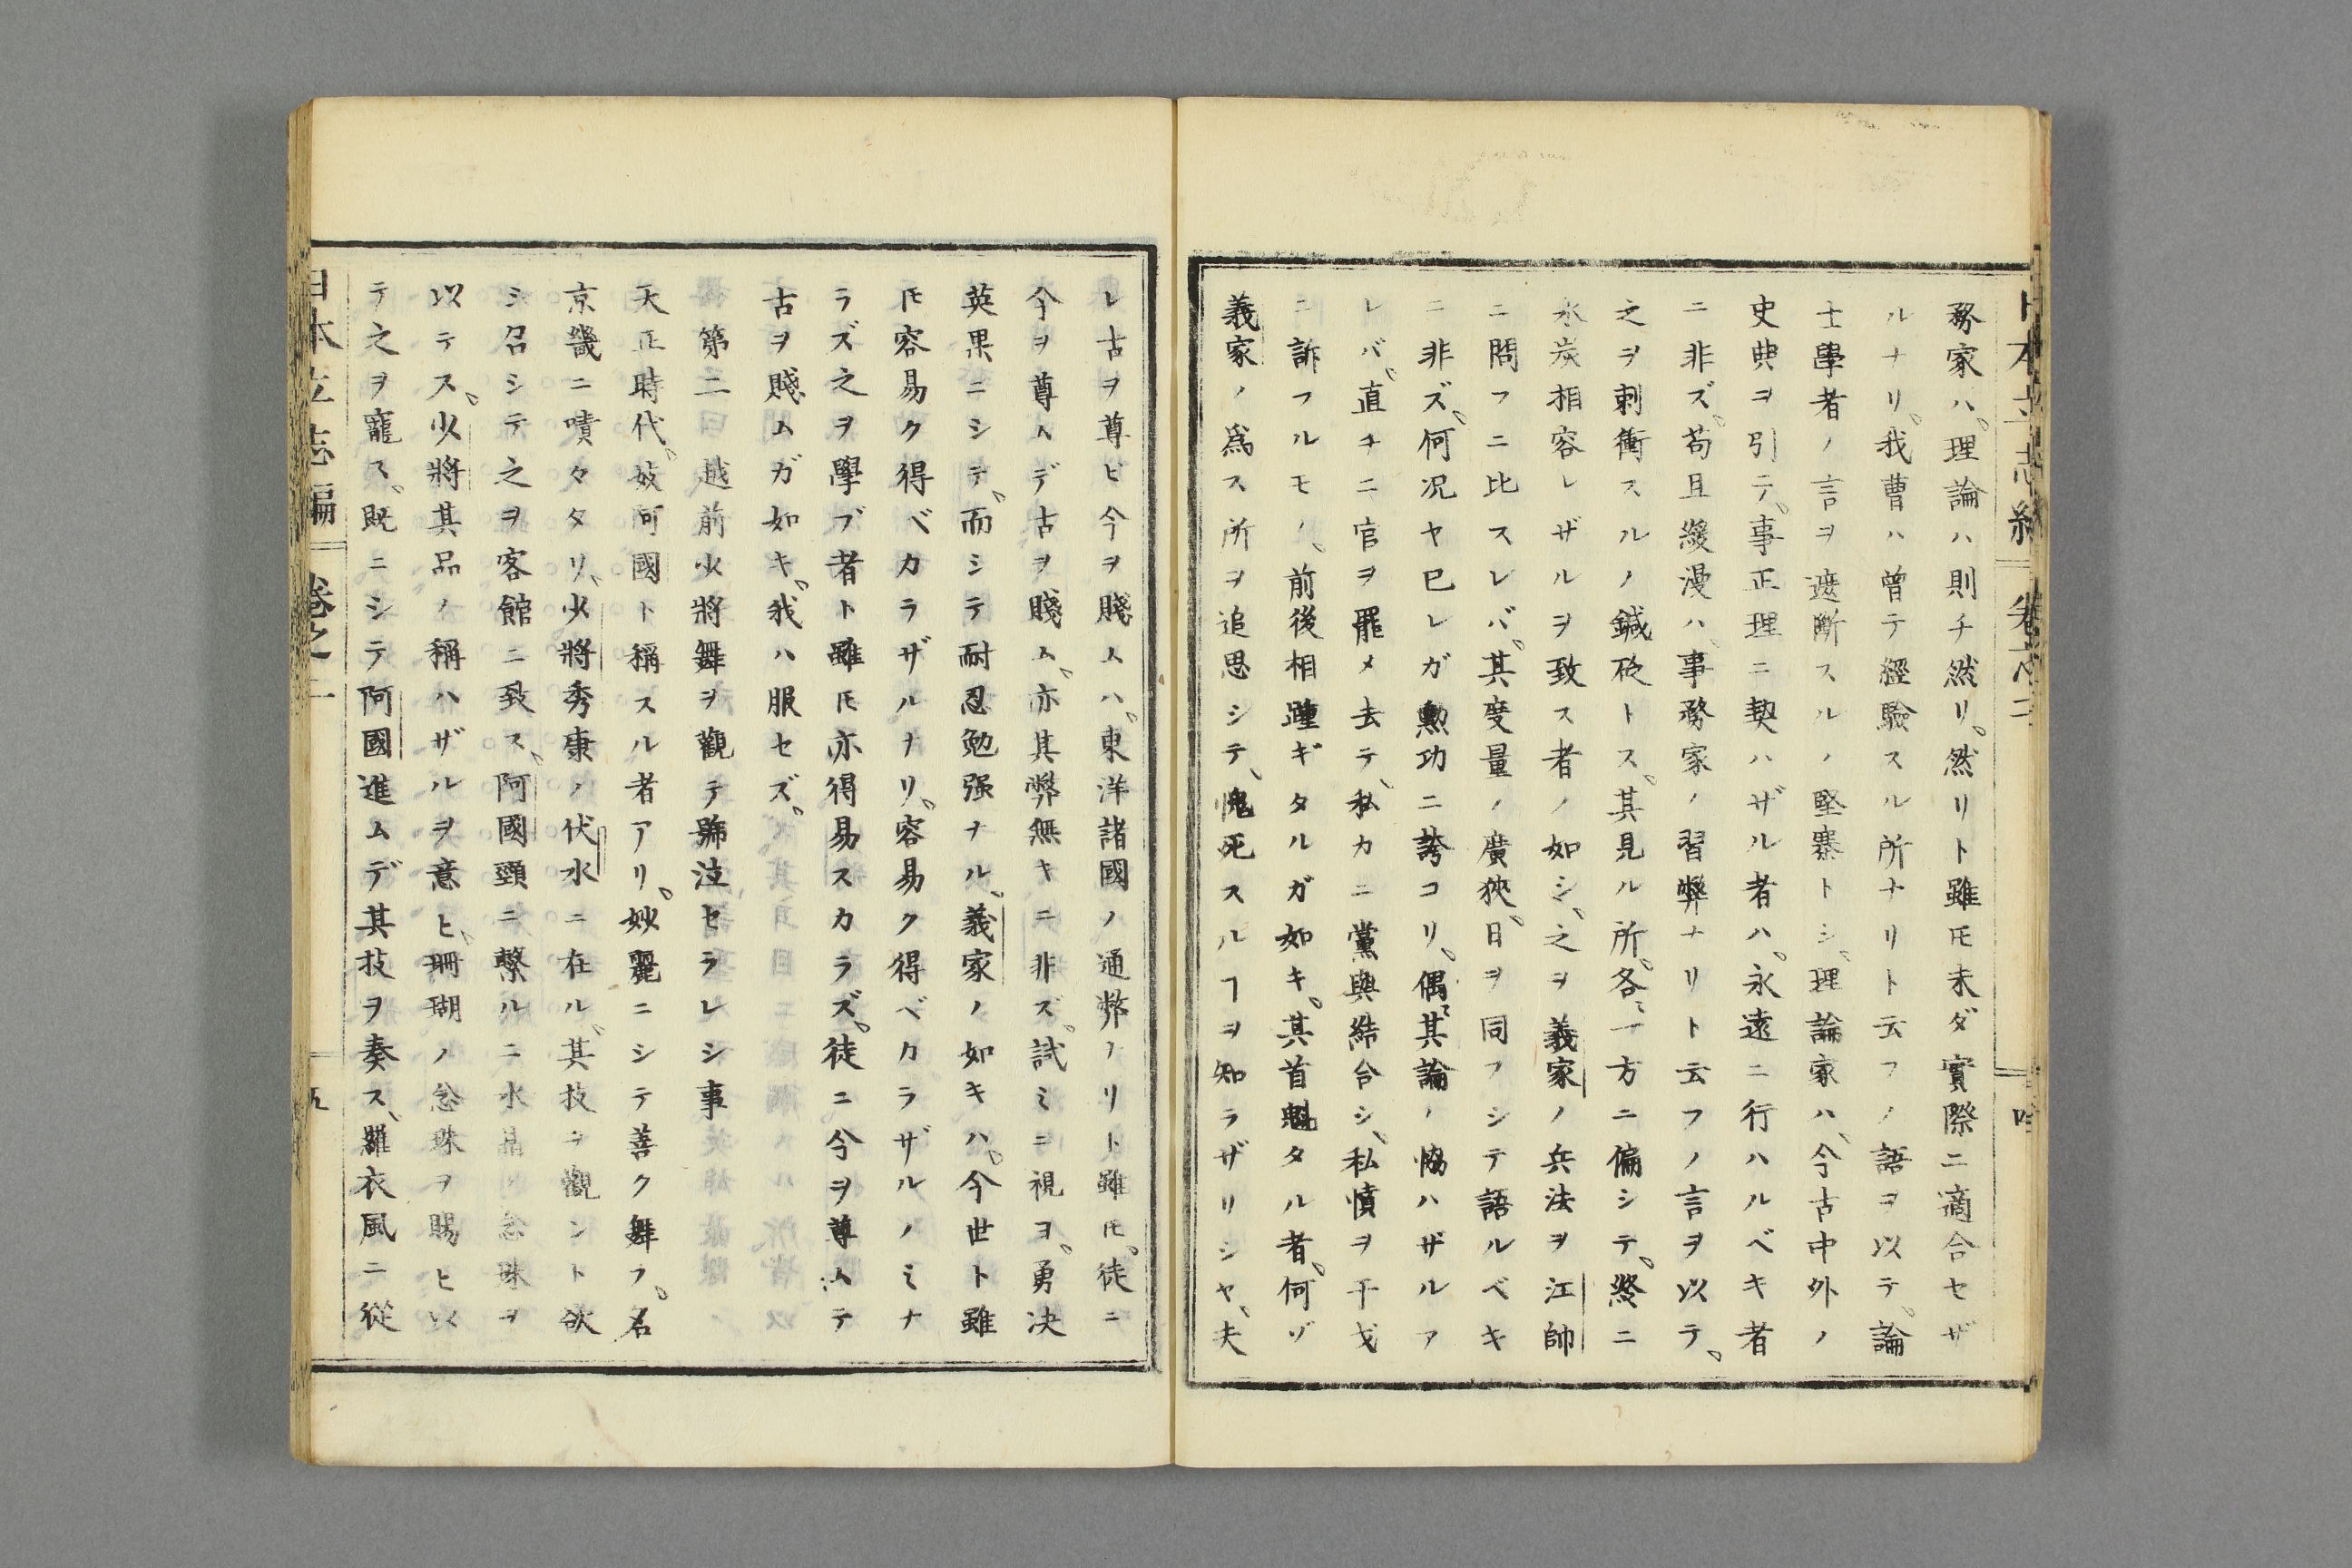 務家ハ、理論ハ則チ然リ、然リト雖𪜈未ダ實際ニ適合セザ
ルナリ、我曹ハ曾テ經驗スル所ナリト云フノ語ヲ以テ、論
士學者ノ言ヲ遮斷スルノ堅寨トシ、理論家ハ、今古中外ノ
史典ヲ引テ、事正理ニ契ハザル者ハ、永遠ニ行ハルベキ者
ニ非ズ、苟且緩漫ハ、事務家ノ習弊ナリト云フノ言ヲ以テ、
之ヲ刺衝スルノ鍼砭トス、其見ル所、各〻一方ニ偏シテ、終ニ
氷炭相容レザルヲ致ス者ノ如シ、之ヲ義家ノ兵法ヲ江帥
ニ問フニ比スレバ、其度量ノ廣狹、日ヲ同フシテ語ルベキ
ニ非ズ、何況ヤ已レガ勲功ニ誇コリ、偶〻其論ノ協ハザルア
レバ、直チニ官ヲ罷メ去テ、私カニ黨與結合シ、私憤ヲ干戈
ニ訴フルモノ、前後相踵ギタルガ如キ、其首魁タル者、何ゾ
義家ノ爲ス所ヲ追思シテ、愧死スルヿヲ知ラザリシヤ、夫
レ古ヲ尊ビ今ヲ賤ムハ、東洋諸國ノ通弊ナリト雖𪜈、徒ニ
今ヲ尊ムデ古ヲ賤ム、亦其弊無キニ非ズ、試ミニ視ヨ、勇决
英果ニシテ、而シテ耐忍勉强ナル、義家ノ如キハ、今世ト雖
𪜈容易ク得ベカラザルナリ、容易ク得ベカラザルノミナ
ラズ之ヲ學ブ者ト雖𪜈亦得易スカラズ、徒ニ今ヲ尊ムテ
古ヲ賤ムガ如キ、我ハ服セズ、
第二 越前少將舞ヲ觀テ號泣セラレシ事
天正時代、妓阿國ト稱スル者アリ、妙麗ニシテ善ク舞フ、名
京畿ニ嘖々タリ、少將秀康ノ伏水ニ在ル、其技ヲ觀ント欲
シ召シテ之ヲ客館ニ致ス、阿國頸ニ繫ルニ水晶ノ念珠ヲ
以テス、少將其品ノ稱ハザルヲ意ヒ、珊瑚ノ念珠ヲ賜ヒ以
テ之ヲ寵ス、既ニシテ阿國進ムデ其技ヲ奏ス、羅衣風ニ從
日本立志編 卷之二 五